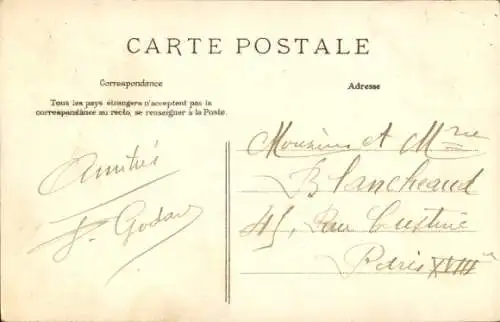 CARTE POSTALE
Correspondance
Adresse
Tous les pays étrangers n'acceptent pas la
correspondance au recto, se renseigner à la Poste.
Amitiés
Godard
Monsieur et Mme
Blancheaud
45, Rue Custine
Paris XVIII